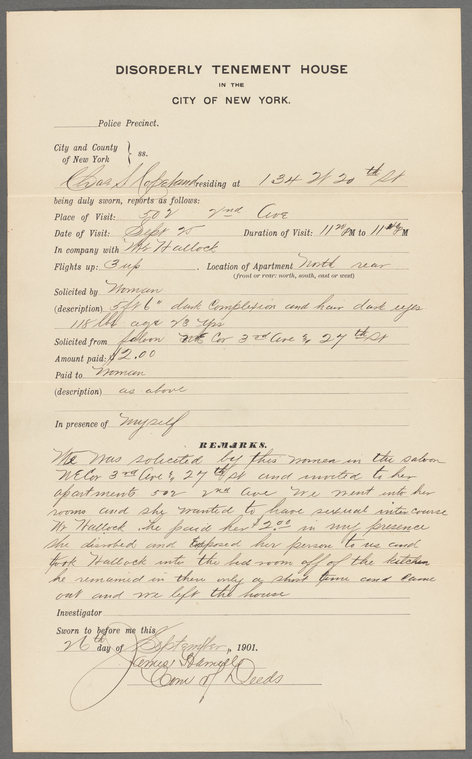 DISORDERLY TENEMENT HOUSE
IN THE
CITY OF NEW YORK.
Police Precinct.
City and County
of New York } ss.
Chas S Copeland residing at 134 W 20th St
being duly sworn, reports as follows:
Place of Visit: 502 2nd Ave
Date of Visit: Sept 25 Duration of Visit: 11 PM to 11 M
In company with Mr Hallock
Flights up: 3 up . Location of Apartment North rear
(front or rear: north, south, east or west)
Solicited by Woman
(description) 5 ft 6" dark Complexion and hair dark eyes
118 lbs age 23 yrs
Solicited from saloon NE Cor 3rd Ave & 27th St
Amount paid: $2.00
Paid to Woman
(description) as above
In presence of Myself
REMARKS.
We was solicited by this women in the saloon
NE Cor 3rd Ave & 27th St and invited to her
apartments 502 2nd Ave We went into her
rooms and she wanted to have sexual intercourse
Mr Hallock he paid her $2.00 in my presence
she disrobed and Exposed her person to us and
took Hallock into the bed room off of the kitchen
he remained in there only a short time and came
out and we left the house
Investigator
Sworn to before me this
26th day of September, 1901.
James
Com of Deeds